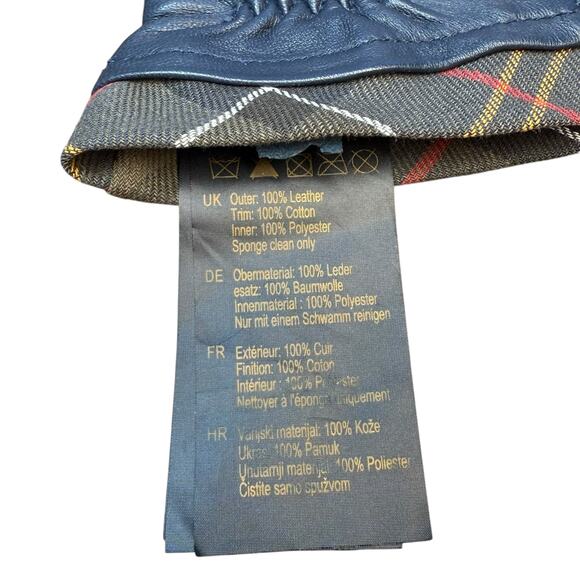 UK Outer: 100% Leather
Trim: 100% Cotton
Inner: 100% Polyester
Sponge clean only
DE Obermaterial: 100% Leder
esatz: 100% Baumwolle
Innenmaterial : 100% Polyester
Nur mit einem Schwamm reinigen
FR Extérieur: 100% Cuir
Finition: 100% Coton
Intérieur : 100% Polyester
Nettoyer à l'éponge uniquement
HR Vanjski materijal: 100% Kože
Ukras: 100% Pamuk
Unutarnji materijal: 100% Poliester
Čistite samo spužvom